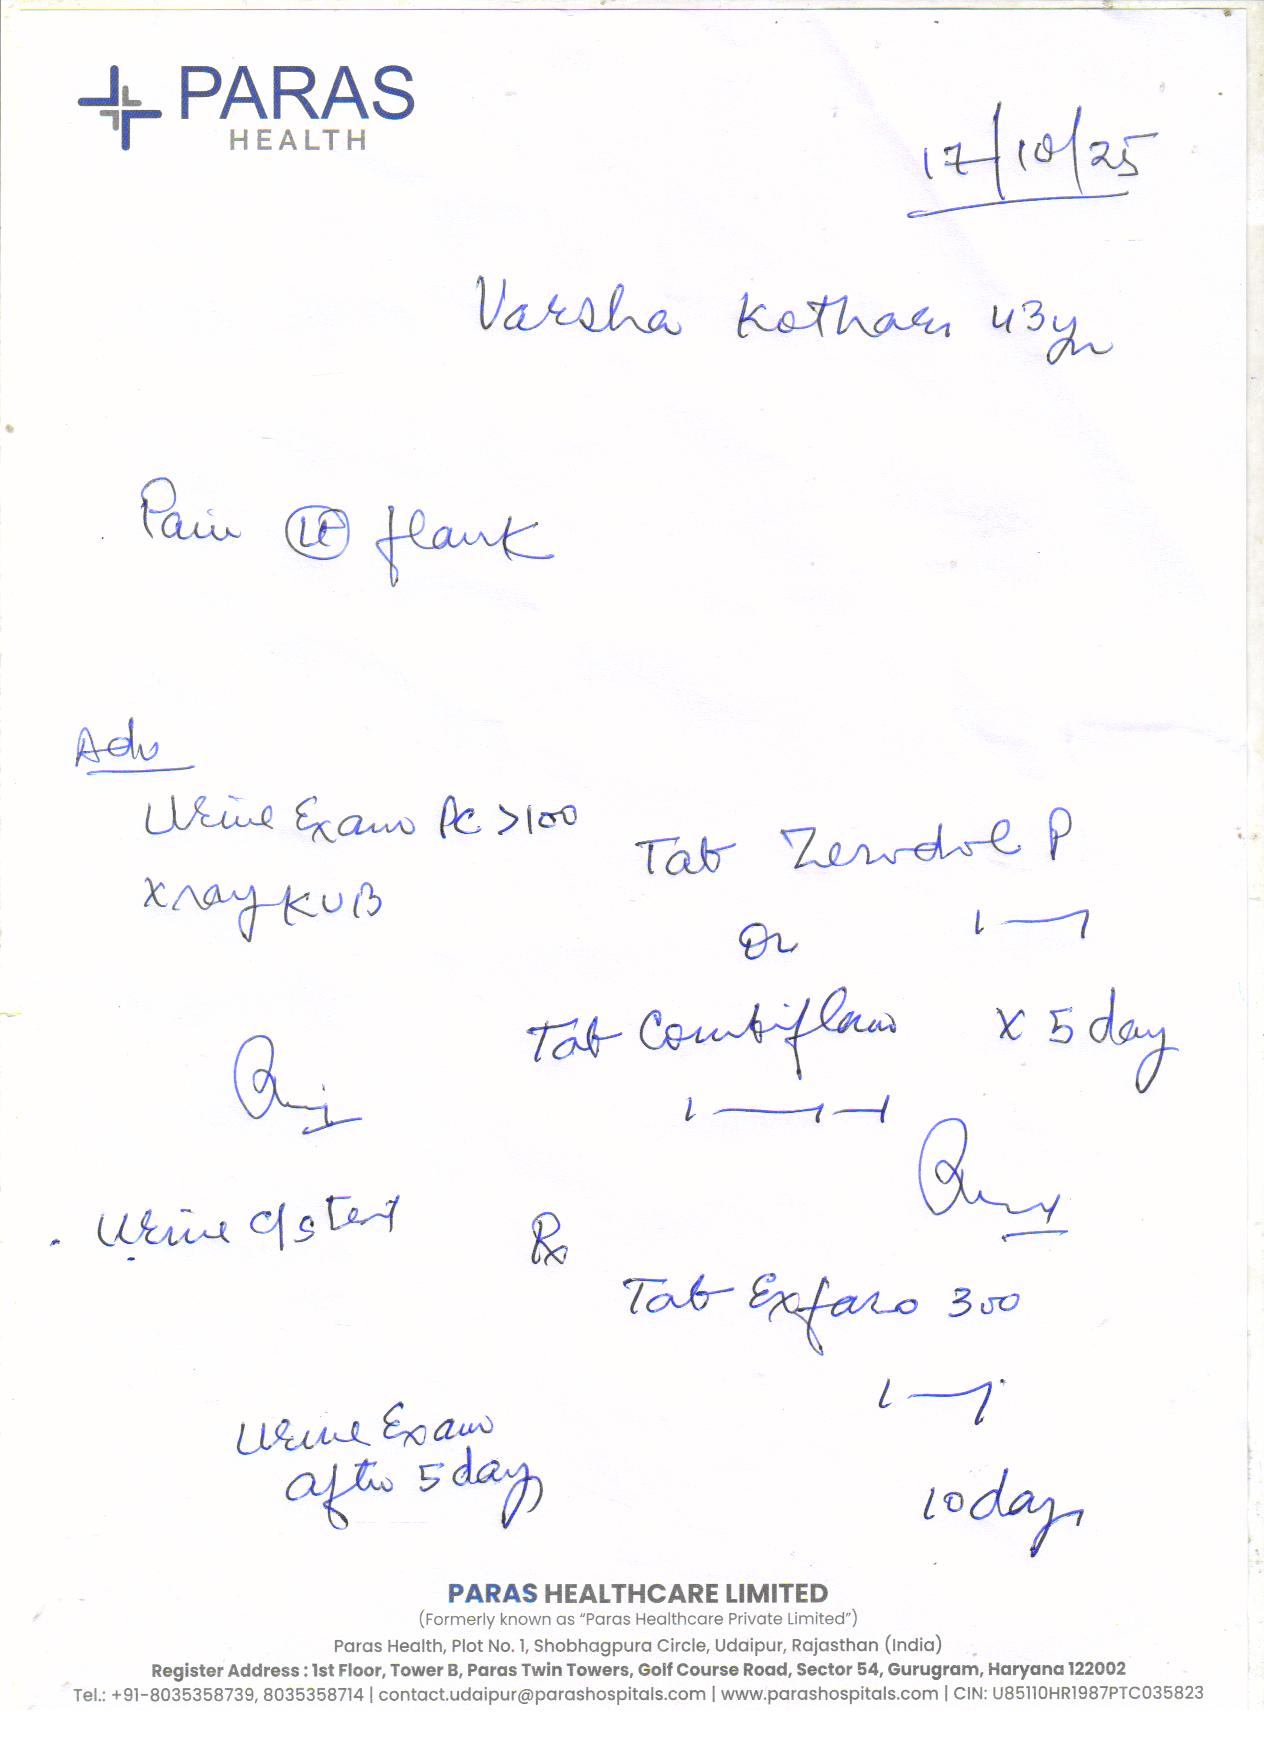 PARAS
HEALTH
17/10/25
Varsha Kothari 43yr
Pain Lt flank
Adv
Urine Exam PC >100
Xray KUB
Tab Zerodol P
1——1
Or
Tab Combiflam x 5 day
1——1—1
Urine c/s test
Rx
Tab Exfaro 300
1——1
Urine Exam
after 5 days
10 days
PARAS HEALTHCARE LIMITED
(Formerly known as “Paras Healthcare Private Limited”)
Paras Health, Plot No. 1, Shobhagpura Circle, Udaipur, Rajasthan (India)
Register Address : 1st Floor, Tower B, Paras Twin Towers, Golf Course Road, Sector 54, Gurugram, Haryana 122002
Tel.: +91-8035358739, 8035358714 | contact.udaipur@parashospitals.com | www.parashospitals.com | CIN: U85110HR1987PTC035823